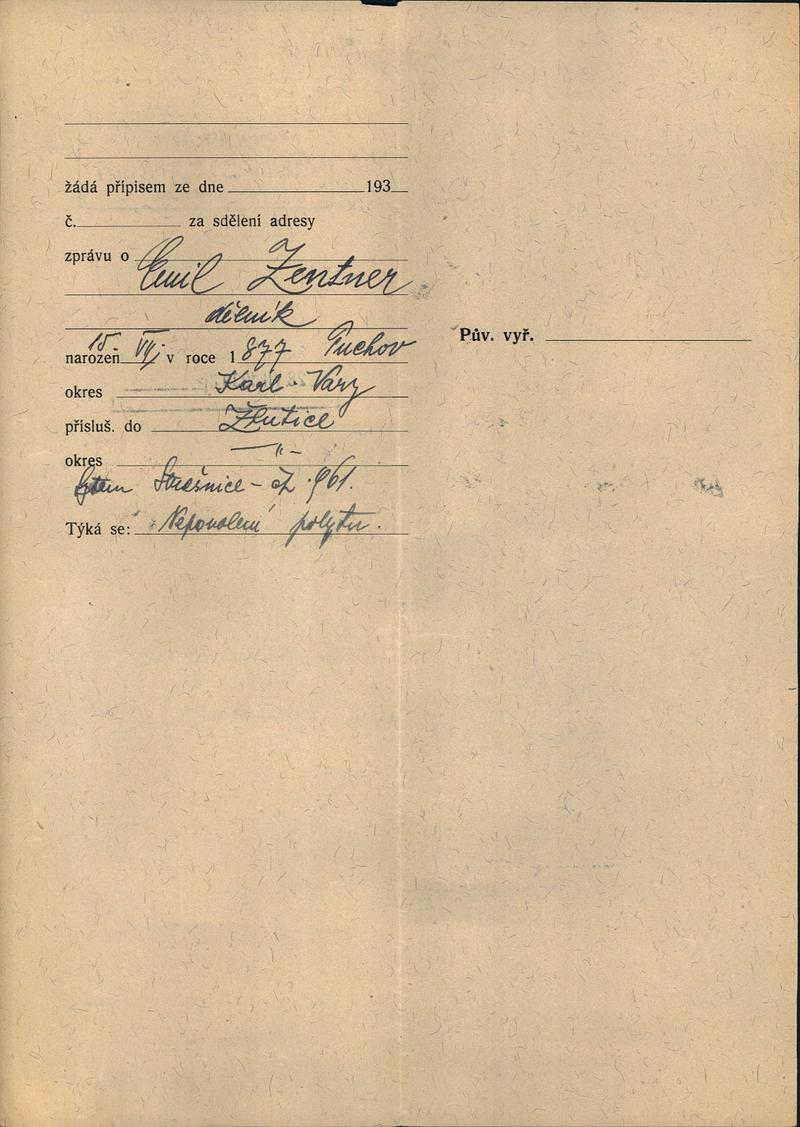 žádá přípisem ze dne 193
č. za sdělení adresy
zprávu o Emil Zentner
dělník
narozen 15 VII. v roce 1877 Puchov
okres Karl. Vary
přísluš. do Žlutice
okres —"—
bytem Strašnice - čp. 961.
Týká se: Nepovolení pobytu.
Pův. vyř.